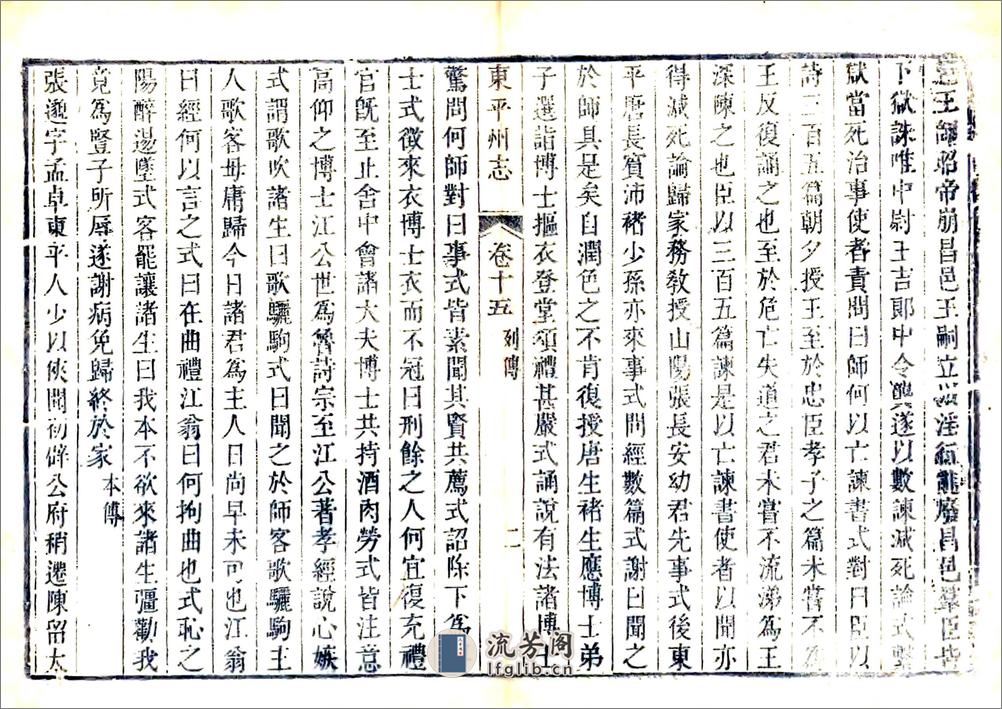 邑王師昭帝崩昌邑王嗣立以淫亂廢昌邑羣臣皆
下獄誅唯中尉王吉郞中令龔遂以數諫減死論式繫
獄當死治事使者責問曰師何以亡諫書式對曰臣以
詩三百五篇朝夕授王至於忠臣孝子之篇未嘗不爲
王反復誦之也至於危亡失道之君未嘗不流涕爲王
深陳之也臣以三百五篇諫是以亡諫書使者以聞亦
得減死論歸家務敎授山陽張長安幼君先事式後東
平唐長賓沛褚少孫亦來事式問經數篇式謝曰聞之
於師具是矣自潤色之不肯復授唐生褚生應博士弟
子選詣博士摳衣登堂頌禮甚嚴式誦說有法諸博士
東平州志 卷十五 列傳 二
驚問何師對曰事式皆素聞其賢共薦式詔除下爲博
士式徵來衣博士衣而不冠曰刑餘之人何宜復充禮
官旣至止舍中會諸大夫博士共持酒肉勞式皆注意
高仰之博士江公世爲魯詩宗至江公著孝經說心嫉
式謂歌吹諸生曰歌驪駒式曰聞之於師客歌驪駒主
人歌客毋庸歸今日諸君爲主人日尚早未可也江翁
曰經何以言之式曰在曲禮江翁曰何拘曲也式恥之
陽醉逿墜式客罷讓諸生曰我本不欲來諸生彊勸我
竟爲豎子所辱遂謝病免歸終於家 本傳
張邈字孟卓東平人少以俠聞初辟公府稍遷陳留太
流芳阁
lfglib.cn